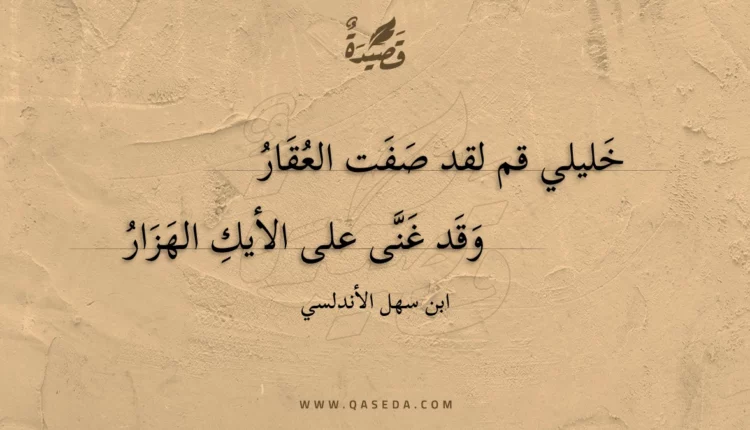 قَصِيْدَةٌ
خَليلي قم لقد صَفَت العُقَارُ
وَقَد غَنَّى على الأيكِ الهَزَارُ
ابن سهل الأندلسي
WWW.QASEDA.COM